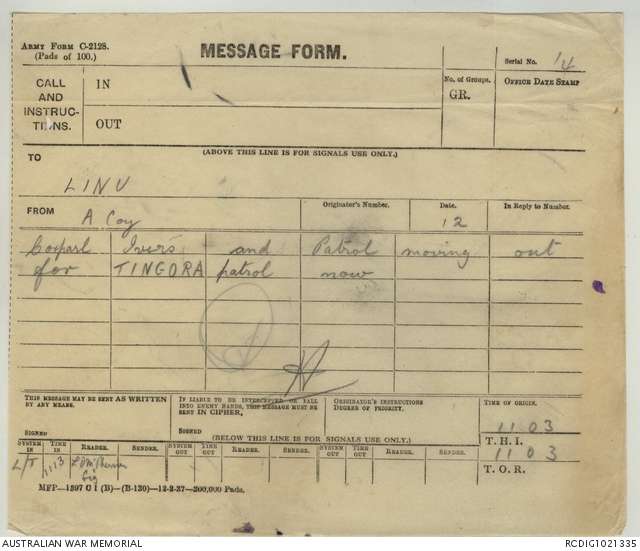 ARMY FORM C-2128.
(Pads of 100.)
MESSAGE FORM.
Serial No. 14
CALL
AND
INSTRUC-
TIONS.
IN
OUT
No. of Groups.
GR.
OFFICE DATE STAMP
(ABOVE THIS LINE IS FOR SIGNALS USE ONLY.)
TO
LINU
FROM
A Coy
Originator's Number.
Date.
12
In Reply to Number.
Corporal Ivers and Patrol moving out
for TINGORA patrol now
THIS MESSAGE MAY BE SENT AS WRITTEN
BY ANY MEANS.
SIGNED
IF LIABLE TO BE INTERCEPTED OR FALL
INTO ENEMY HANDS, THIS MESSAGE MUST BE
SENT IN CIPHER.
SIGNED
ORIGINATOR'S INSTRUCTIONS
DEGREE OF PRIORITY.
TIME OF ORIGIN.
1103
(BELOW THIS LINE IS FOR SIGNALS USE ONLY.)
T. H. I.
1103
T. O. R.
SYSTEM IN
TIME IN
READER.
SENDER.
SYSTEM OUT
TIME OUT
READER.
SENDER.
SYSTEM OUT
TIME OUT
READER.
SENDER.
L/T 1113
Sig
MFP—1397 O 1 (B)—(B-130)—12-2-37—200,000 Pads.
AUSTRALIAN WAR MEMORIAL
RCDIG1021335